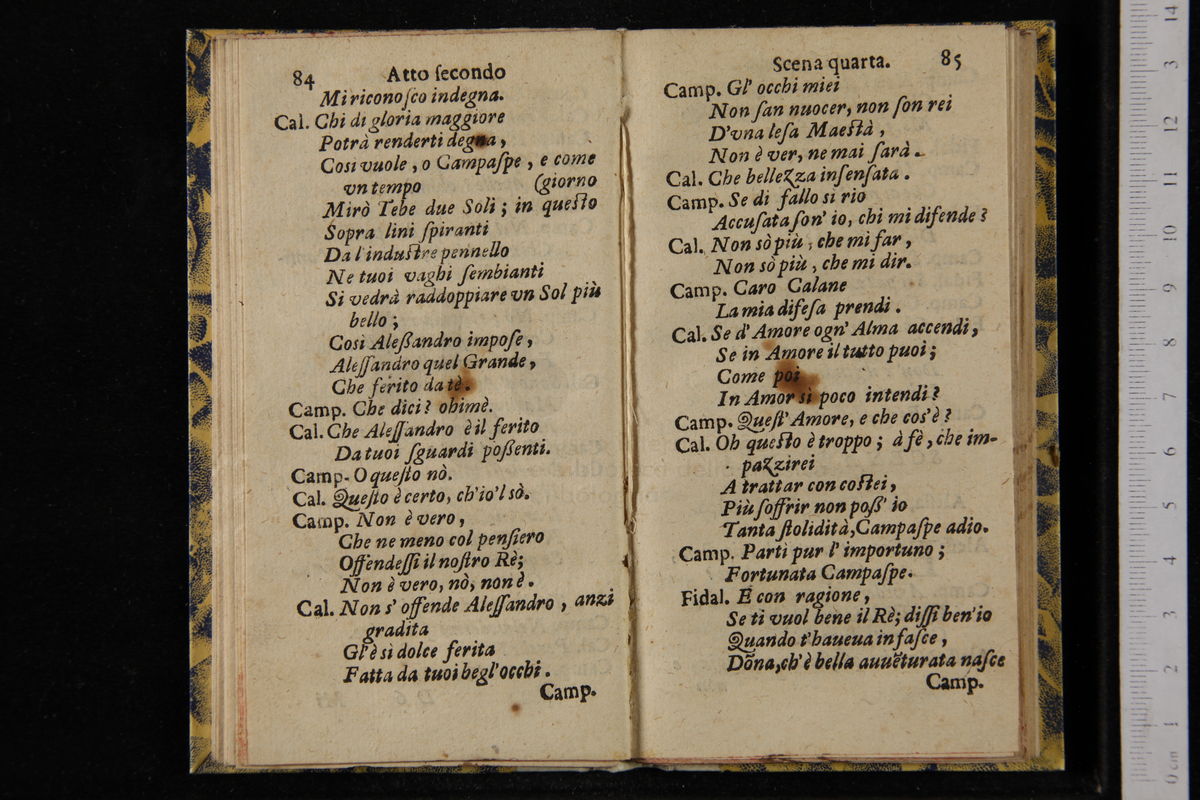 84 Atto ſecondo
Mi riconoſco indegna.
Cal. Chi di gloria maggiore
Potrà renderti degna,
Così vuole, o Campaſpe, e come
vn tempo (giorno
Mirò Tebe due Soli; in queſto
Sopra lini ſpiranti
Da l'induſtre pennello
Ne tuoi vaghi ſembianti
Si vedrà raddoppiare vn Sol più
bello;
Così Aleßandro impoſe,
Aleſſandro quel Grande,
Che ferito da tè.
Camp. Che dici? ohimè.
Cal. Che Aleſſandro è il ferito
Da tuoi ſguardi poßenti.
Camp. O queſto nò.
Cal. Queſto è certo, ch'io'l sò.
Camp. Non è vero,
Che ne meno col penſiero
Offendeſſi il noſtro Rè;
Non è vero, nò, non è.
Cal. Non s'offende Aleſſandro, anzi
gradita
Gl'è sì dolce ferita
Fatta da tuoi begl'occhi.
Camp.
Scena quarta. 85
Camp. Gl'occhi miei
Non ſan nuocer, non ſon rei
D'vna leſa Maeſtà,
Non è ver, ne mai ſarà.
Cal. Che bellezza inſenſata.
Camp. Se di fallo sì rio
Accuſata ſon' io, chi mi difende?
Cal. Non sò più, che mi far,
Non sò più, che mi dir.
Camp. Caro Calane
La mia difeſa prendi.
Cal. Se d'Amore ogn'Alma accendi,
Se in Amore il tutto puoi;
Come poi
In Amor sì poco intendi?
Camp. Queſt'Amore, e che cos'è?
Cal. Oh queſto è troppo; à fè, che im-
pazzirei
A trattar con coſtei,
Più ſoffrir non poß' io
Tanta ſtolidità, Campaſpe adio.
Camp. Partì pur l'importuno;
Fortunata Campaſpe.
Fidal. E con ragione,
Se ti vuol bene il Rè; diſſi ben'io
Quando t'haueua in faſce,
Dōna, ch'è bella auuēturata naſce
Camp.